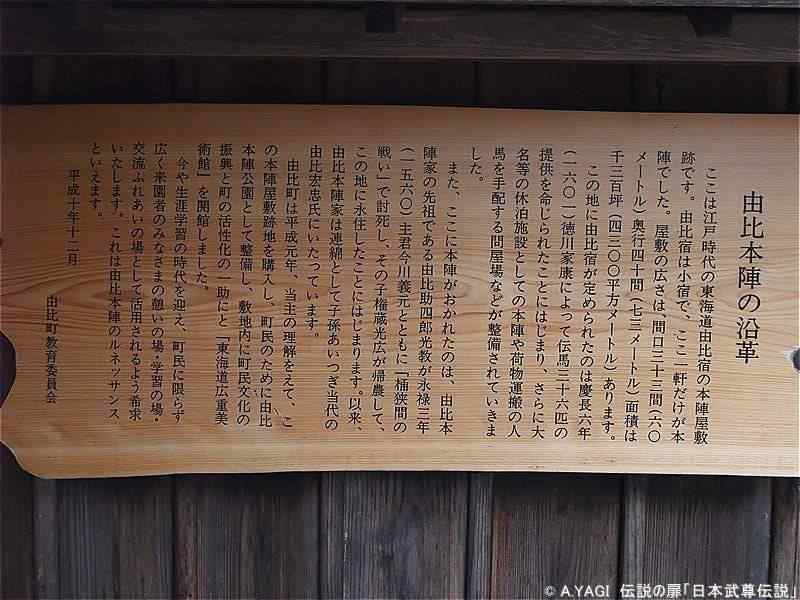 由比本陣の沿革
ここは江戸時代の東海道由比宿の本陣屋敷
跡です。由比宿は小宿で、ここ一軒だけが本
陣でした。屋敷の広さは、間口三十三間(六〇
メートル)奥行四十間(七三メートル)面積は
千三百坪(四三〇〇平方メートル)あります。
この地に由比宿が定められたのは慶長六年
(一六〇一)徳川家康によって伝馬三十六匹の
提供を命じられたことにはじまり、さらに大
名等の休泊施設としての本陣や荷物運搬の人
馬を手配する問屋場などが整備されていきま
した。
また、ここに本陣がおかれたのは、由比本
陣家の先祖である由比助四郎光教が永禄三年
(一五六〇)主君今川義元とともに「桶狭間の
戦い」で討死し、その子権蔵光広が帰農して、
この地に永住したことにはじまります。以来、
由比本陣家は連綿として子孫あいつぎ当代の
由比宏忠氏にいたっています。
由比町は平成元年、当主の理解をえて、こ
の本陣屋敷跡地を購入し、町民のために由比
本陣公園として整備し、敷地内に町民文化の
振興と町の活性化の一助にと「東海道広重美
術館」を開館しました。
今や生涯学習の時代を迎え、町民に限らず
広く来園者のみなさまの憩いの場・学習の場・
交流ふれあいの場として活用されるよう希求
いたします。これは由比本陣のルネッサンス
といえます。
平成十年十二月
由比町教育委員会
© A.YAGI 伝説の扉「日本武尊伝説」